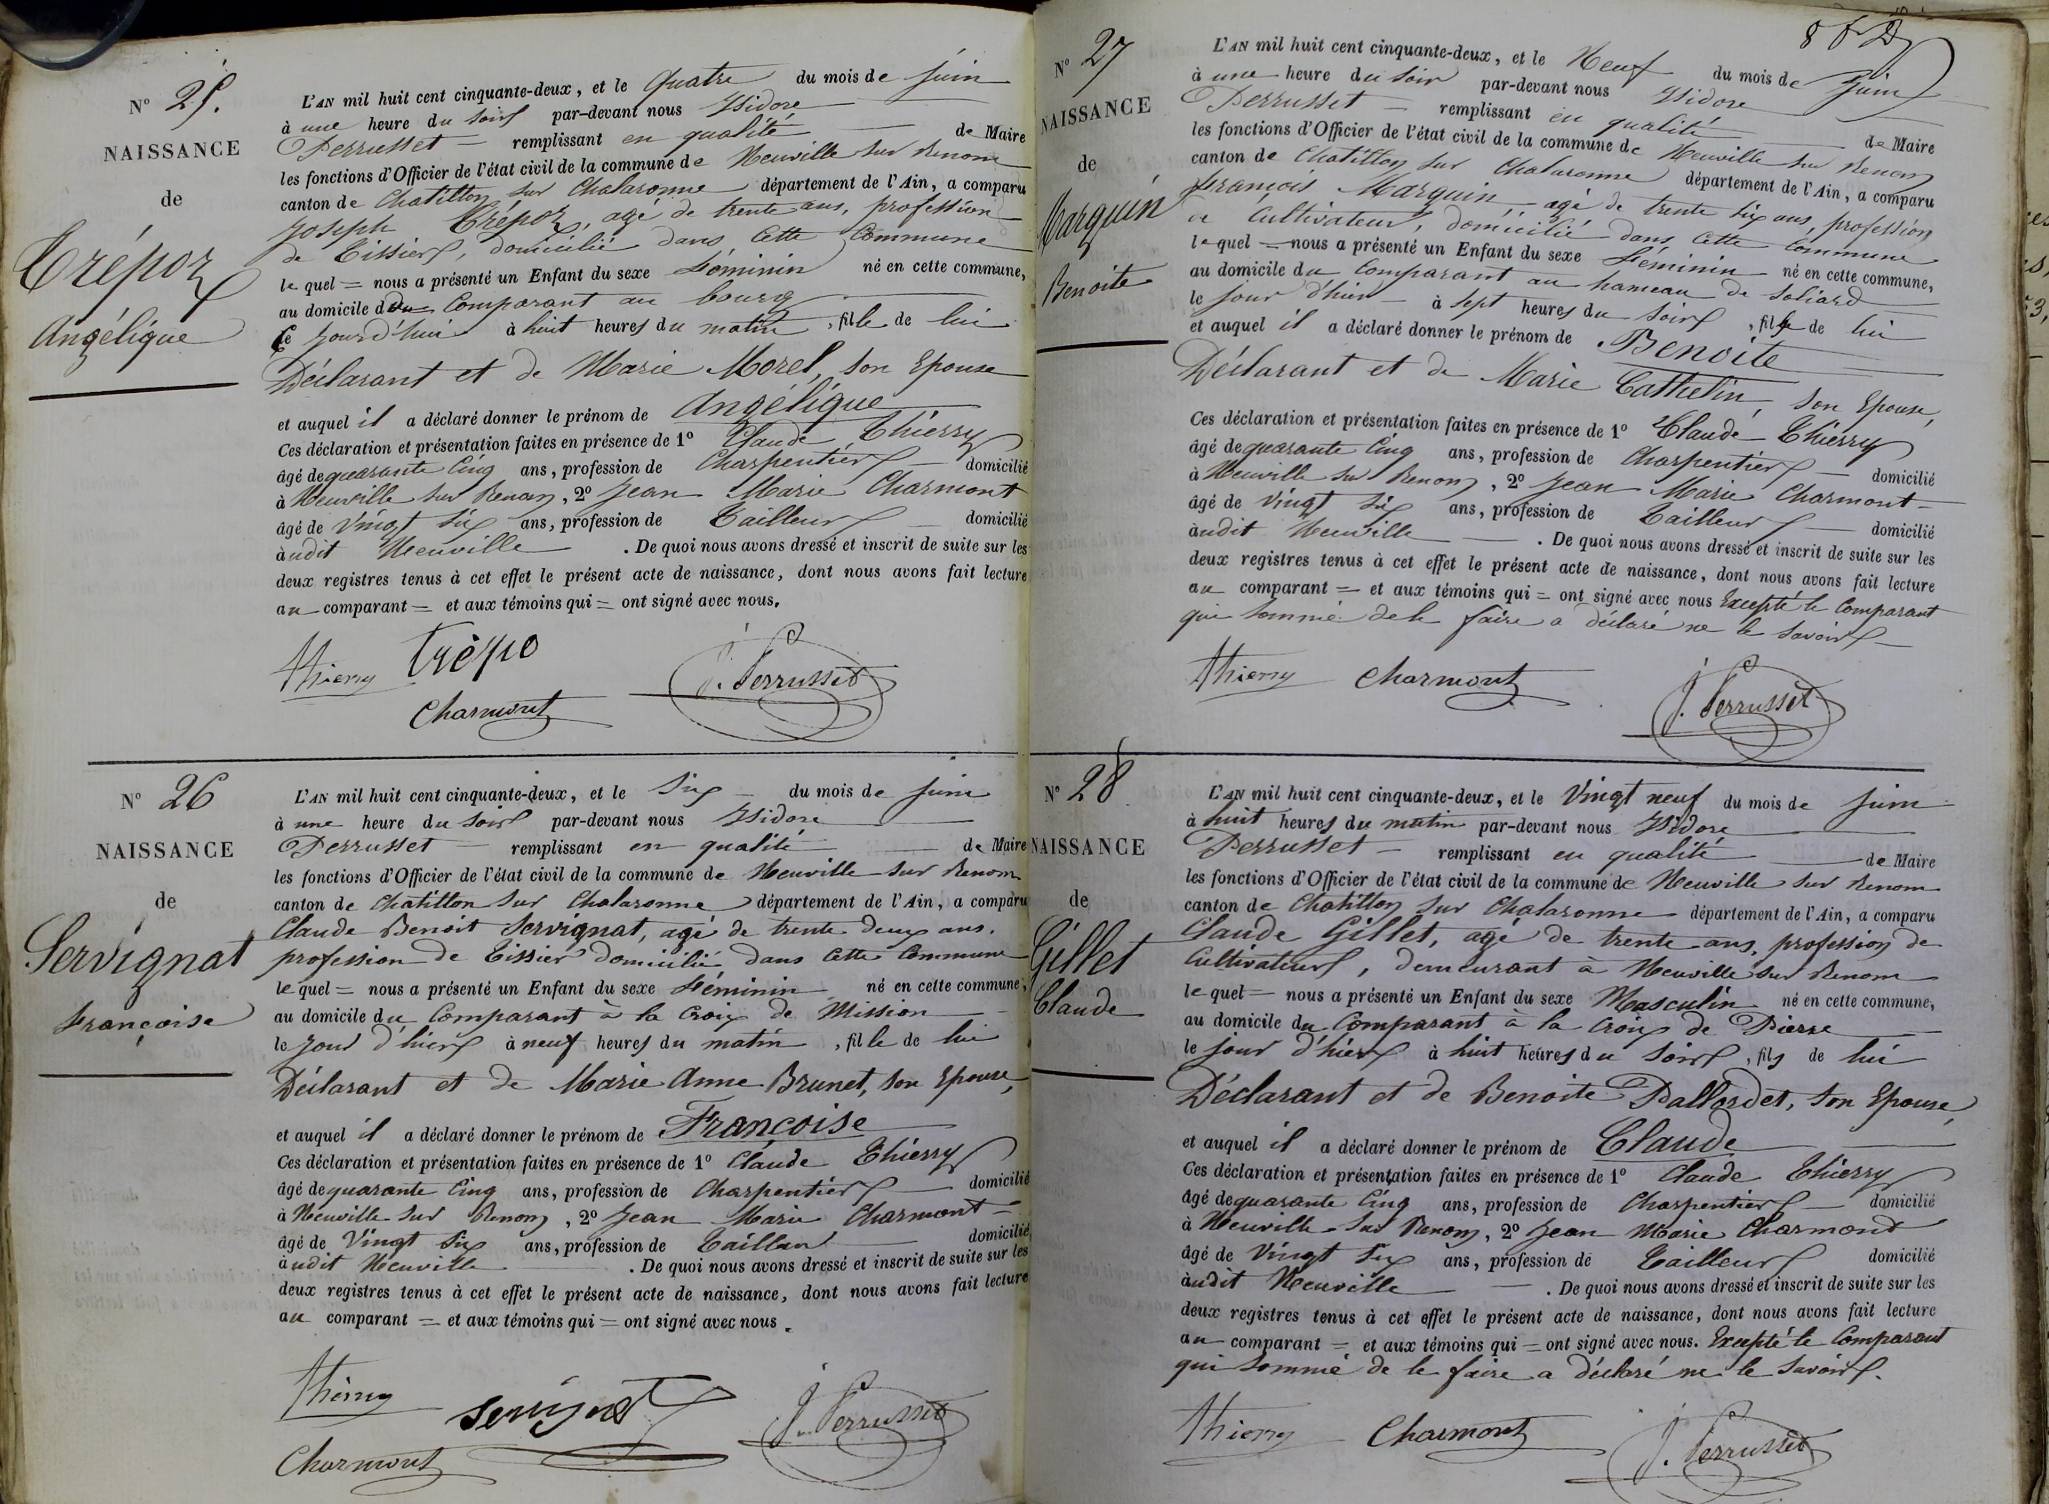 N° 25.
NAISSANCE
de
Trépoz
Angélique
L'AN mil huit cent cinquante-deux, et le Quatre du mois de Juin
à une heure du soir par-devant nous Isidore
Perrusset remplissant en qualité de Maire
les fonctions d'Officier de l'état civil de la commune de Neuville sur Renom
canton de Chatillon sur Chalaronne département de l'Ain, a comparu
Joseph Trépoz, agé de trente ans, profession
de Tissier, domicilié dans cette Commune
lequel = nous a présenté un Enfant du sexe Féminin né en cette commune,
au domicile du Comparant au bourg
le jourd'hui à huit heures du matin, fille de lui
Déclarant et de Marie Morel, son Epouse
et auquel il a déclaré donner le prénom de Angélique
Ces déclaration et présentation faites en présence de 1° Claude Thierry
âgé de quarante Cinq ans, profession de Charpentier domicilié
à Neuville sur Renom, 2° Jean Marie Charmont
âgé de Vingt Six ans, profession de Tailleur domicilié
audit Neuville . De quoi nous avons dressé et inscrit de suite sur les
deux registres tenus à cet effet le présent acte de naissance, dont nous avons fait lecture
au comparant = et aux témoins qui = ont signé avec nous.
Thierry trépo
Charmont J. Perrusset
N° 26
NAISSANCE
de
Servignat
Françoise
L'AN mil huit cent cinquante-deux, et le Six du mois de Juin
à une heure du soir par-devant nous Isidore
Perrusset remplissant en qualité de Maire
les fonctions d'Officier de l'état civil de la commune de Neuville sur Renom
canton de Chatillon sur Chalaronne département de l'Ain, a comparu
Claude Benoit Servignat, agé de trente deux ans,
profession de Tissier domicilié dans cette Commune
lequel = nous a présenté un Enfant du sexe Féminin né en cette commune,
au domicile du Comparant à la Croix de Mission
le jour d'hier à neuf heures du matin, fille de lui
Déclarant et de Marie Anne Brunet, son Epouse,
et auquel il a déclaré donner le prénom de Françoise
Ces déclaration et présentation faites en présence de 1° Claude Thierry
âgé de quarante Cinq ans, profession de Charpentier domicilié
à Neuville sur Renom, 2° Jean Marie Charmont
âgé de Vingt Six ans, profession de Tailleur domicilié
audit Neuville . De quoi nous avons dressé et inscrit de suite sur les
deux registres tenus à cet effet le présent acte de naissance, dont nous avons fait lecture
au comparant = et aux témoins qui = ont signé avec nous.
Thierry servignat J. Perrusset
Charmont
N° 27
NAISSANCE
de
Marguin
Benoite
L'AN mil huit cent cinquante-deux, et le Neuf du mois de Juin
à une heure du soir par-devant nous Isidore
Perrusset remplissant en qualité de Maire
les fonctions d'Officier de l'état civil de la commune de Neuville sur Renom
canton de Chatillon sur Chalaronne département de l'Ain, a comparu
François Marguin agé de trente six ans, profession
de Cultivateur, domicilié dans cette Commune
lequel = nous a présenté un Enfant du sexe Féminin né en cette commune,
au domicile du Comparant au hameau de Soliard
le jour d'hier à sept heures du soir, fille de lui
et auquel il a déclaré donner le prénom de Benoite
Déclarant et de Marie Cathelin, son Epouse,
Ces déclaration et présentation faites en présence de 1° Claude Thierry
âgé de quarante Cinq ans, profession de Charpentier domicilié
à Neuville sur Renom, 2° Jean Marie Charmont
âgé de Vingt Six ans, profession de Tailleur domicilié
audit Neuville . De quoi nous avons dressé et inscrit de suite sur les
deux registres tenus à cet effet le présent acte de naissance, dont nous avons fait lecture
au comparant = et aux témoins qui = ont signé avec nous Excepté le Comparant
qui sommé de le faire a déclaré ne le savoir
Thierry Charmont
J. Perrusset
N° 28
NAISSANCE
de
Gillet
Claude
L'AN mil huit cent cinquante-deux, et le Vingt neuf du mois de Juin
à huit heures du matin par-devant nous Isidore
Perrusset remplissant en qualité de Maire
les fonctions d'Officier de l'état civil de la commune de Neuville sur Renom
canton de Chatillon sur Chalaronne département de l'Ain, a comparu
Claude Gillet, agé de trente ans, profession de
Cultivateur, demeurant à Neuville sur Renom
lequel = nous a présenté un Enfant du sexe Masculin né en cette commune,
au domicile du Comparant à la Croix de Pierre
le jour d'hier à huit heures du soir, fils de lui
Déclarant et de Benoite Pallordet, son Epouse,
et auquel il a déclaré donner le prénom de Claude
Ces déclaration et présentation faites en présence de 1° Claude Thierry
âgé de quarante Cinq ans, profession de Charpentier domicilié
à Neuville sur Renom, 2° Jean Marie Charmont
âgé de Vingt Six ans, profession de Tailleur domicilié
audit Neuville . De quoi nous avons dressé et inscrit de suite sur les
deux registres tenus à cet effet le présent acte de naissance, dont nous avons fait lecture
au comparant = et aux témoins qui = ont signé avec nous. Excepté le Comparant
qui sommé de le faire a déclaré ne le savoir.
Thierry Charmont J. Perrusset